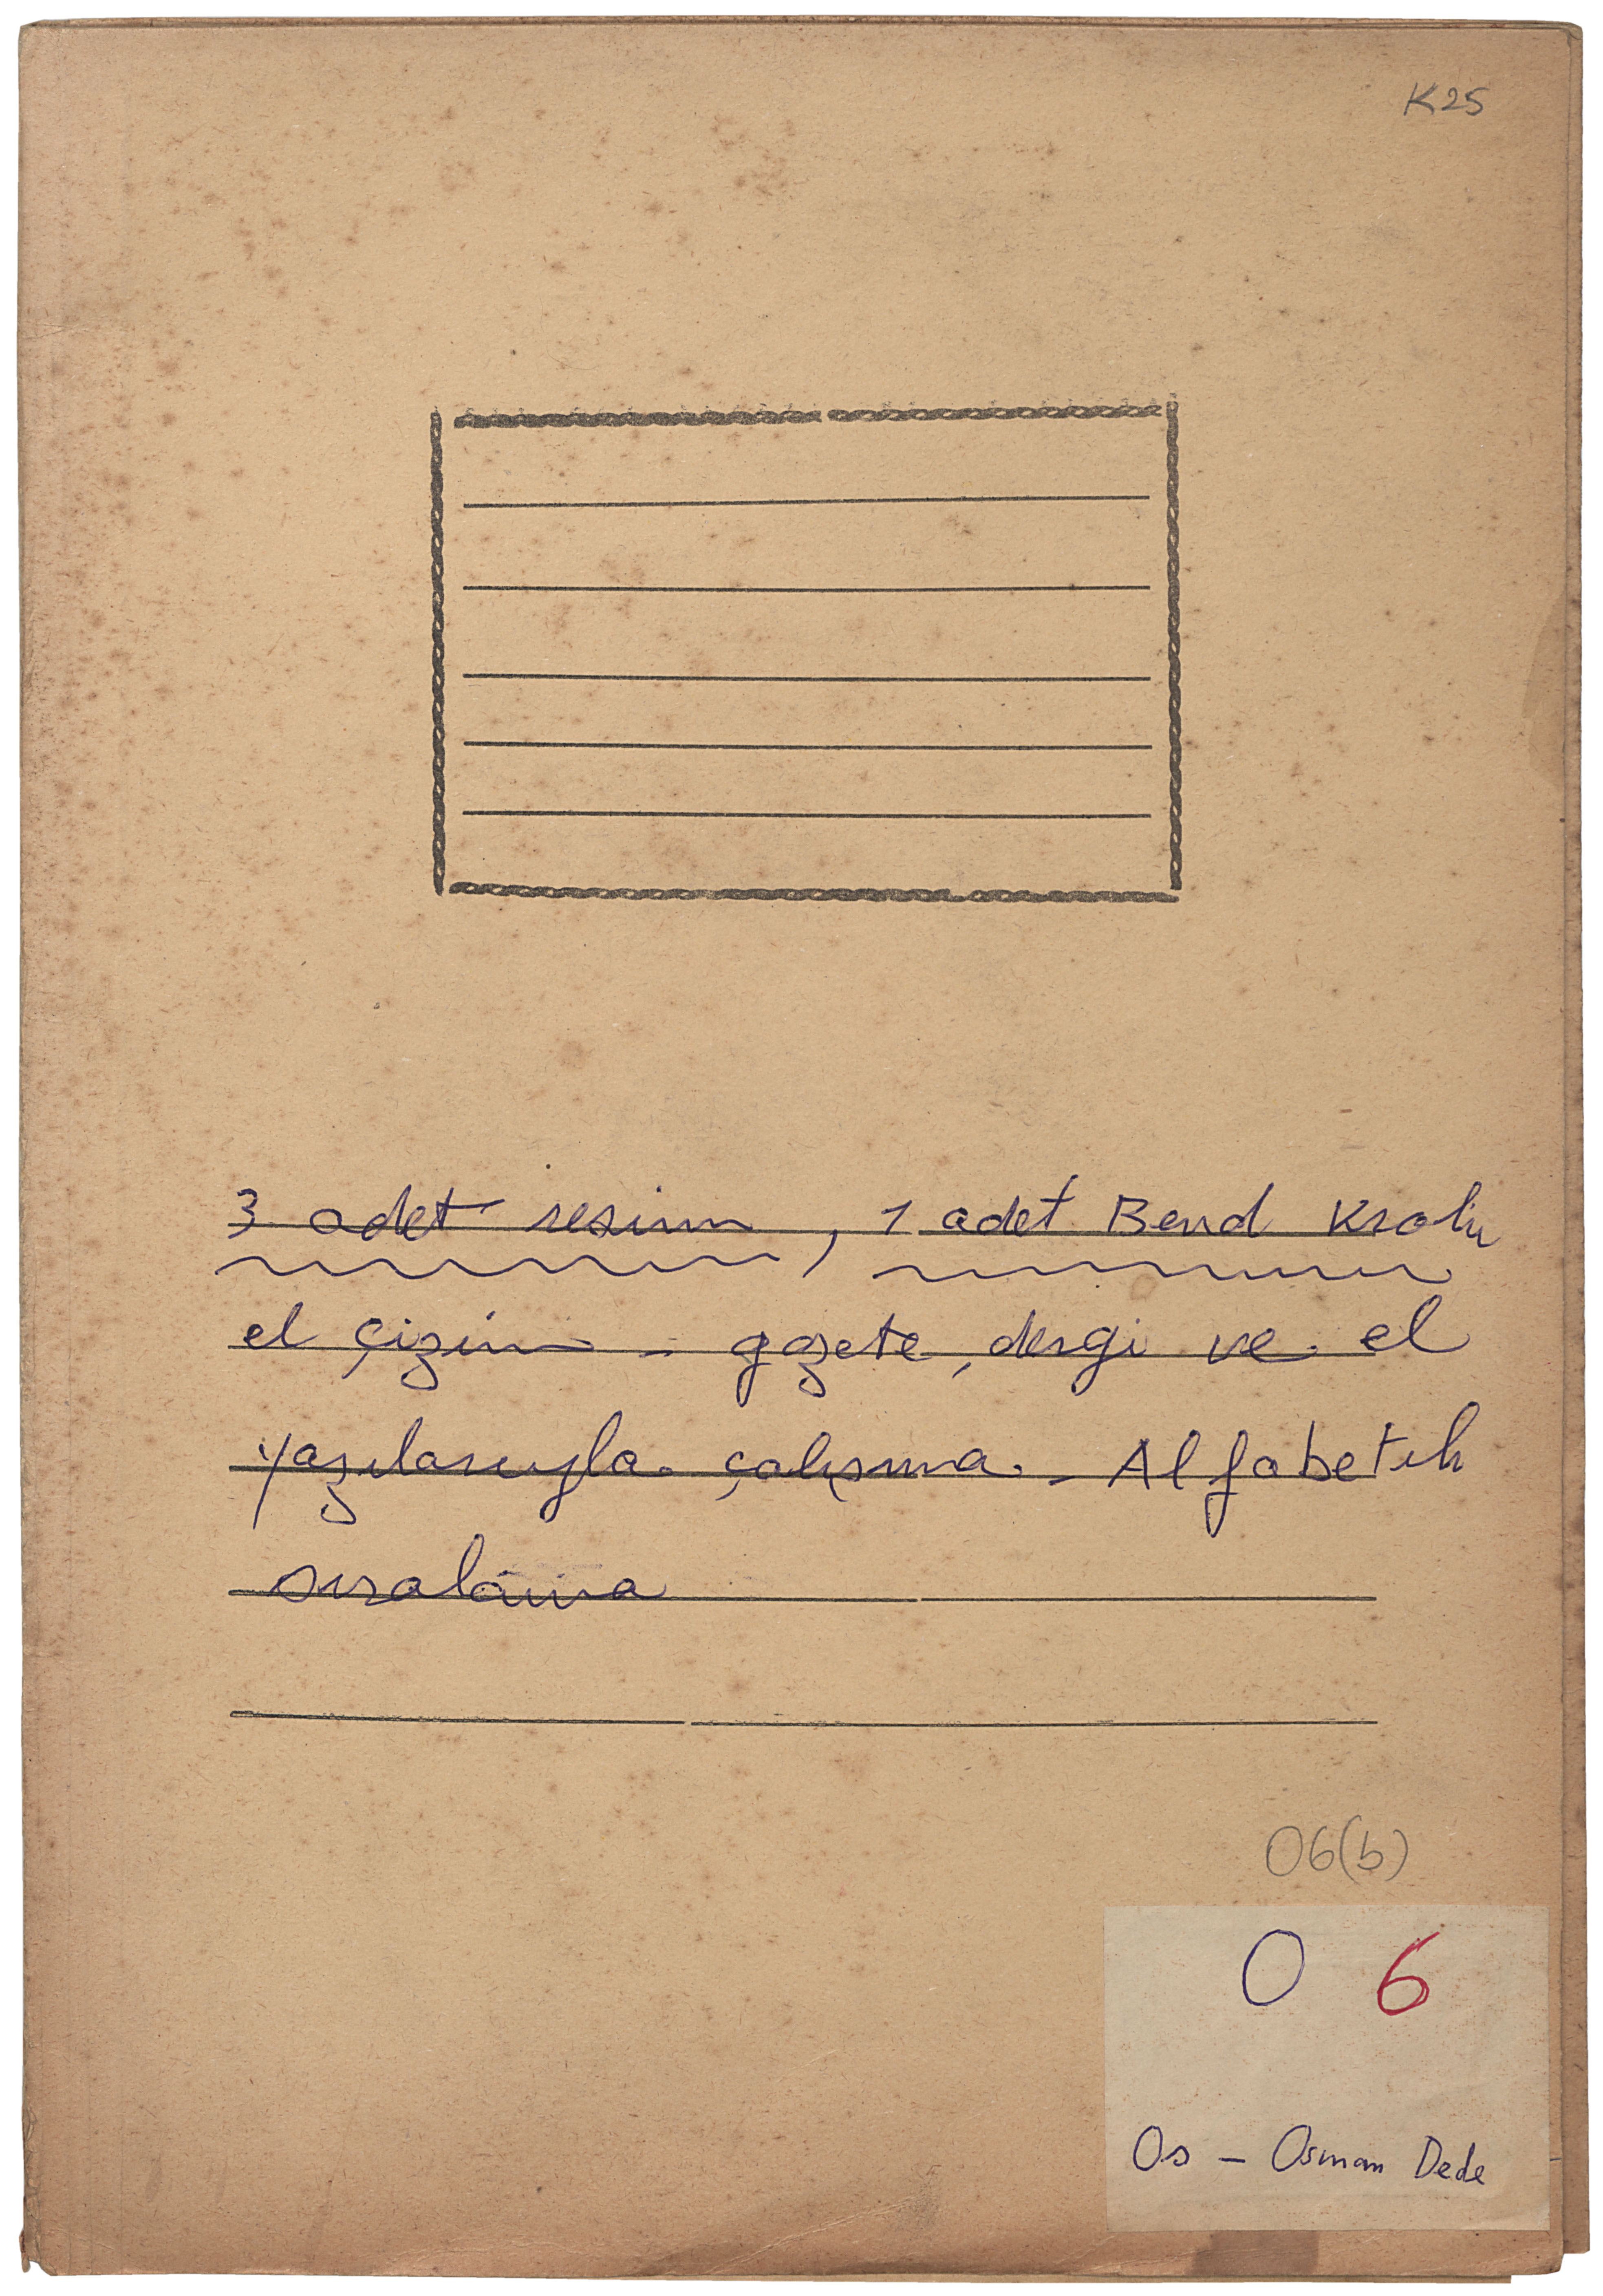 K25
3 adet resim, 1 adet Bend Kroki
el çizim - gazete, dergi ve el
yazılarıyla çalışma. - Alfabetik
sıralama
O6(b)
O 6
Os - Osman Dede